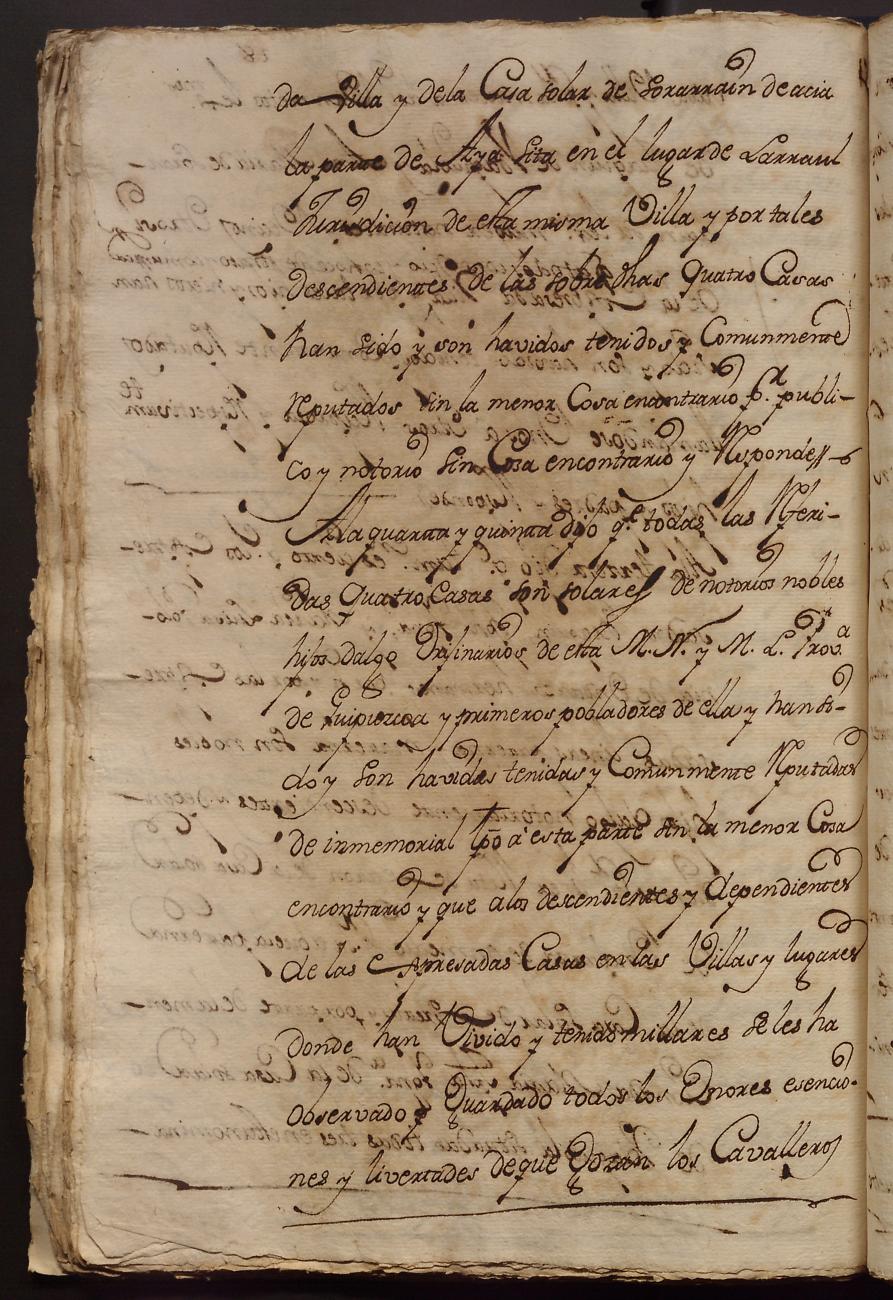 da Villa y dela Casa solar de Sorarrain de acia
la parte de Aya sita en el lugar de Larraul
Jurisdicion de esta misma Villa y por tales
descendientes de las sobre dhas quatro Casas
han sido y son havidos tenidos y Comunmente
Reputados sin la menor Cosa encontrario pr. publi-
co y notorio sin Cosa encontrario y Responde
Ala quarta y quinta dijo qe. todas las Referi-
das quatro Casas son solares de notorios nobles
hijos dalgo Orijinarios de esta M. N. y M. L. Prova.
de Guipuzcoa y primeros pobladores de ella y han si-
do y son havidas tenidas y Comunmente Reputadas
de inmemorial tpo à esta parte sin la menor Cosa
encontrario y que alos descendientes y dependientes
de las Espresadas Casas en las Villas y lugares
donde han Vivido y tenido millares se les ha
observado y Guardado todos los Onores esencio-
nes y livertades de que Gozan los Cavalleros